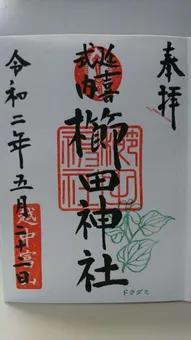 奉拝
延喜
式内
櫛田神社
令和二年五月二十一日
越中富山
ドクダミ